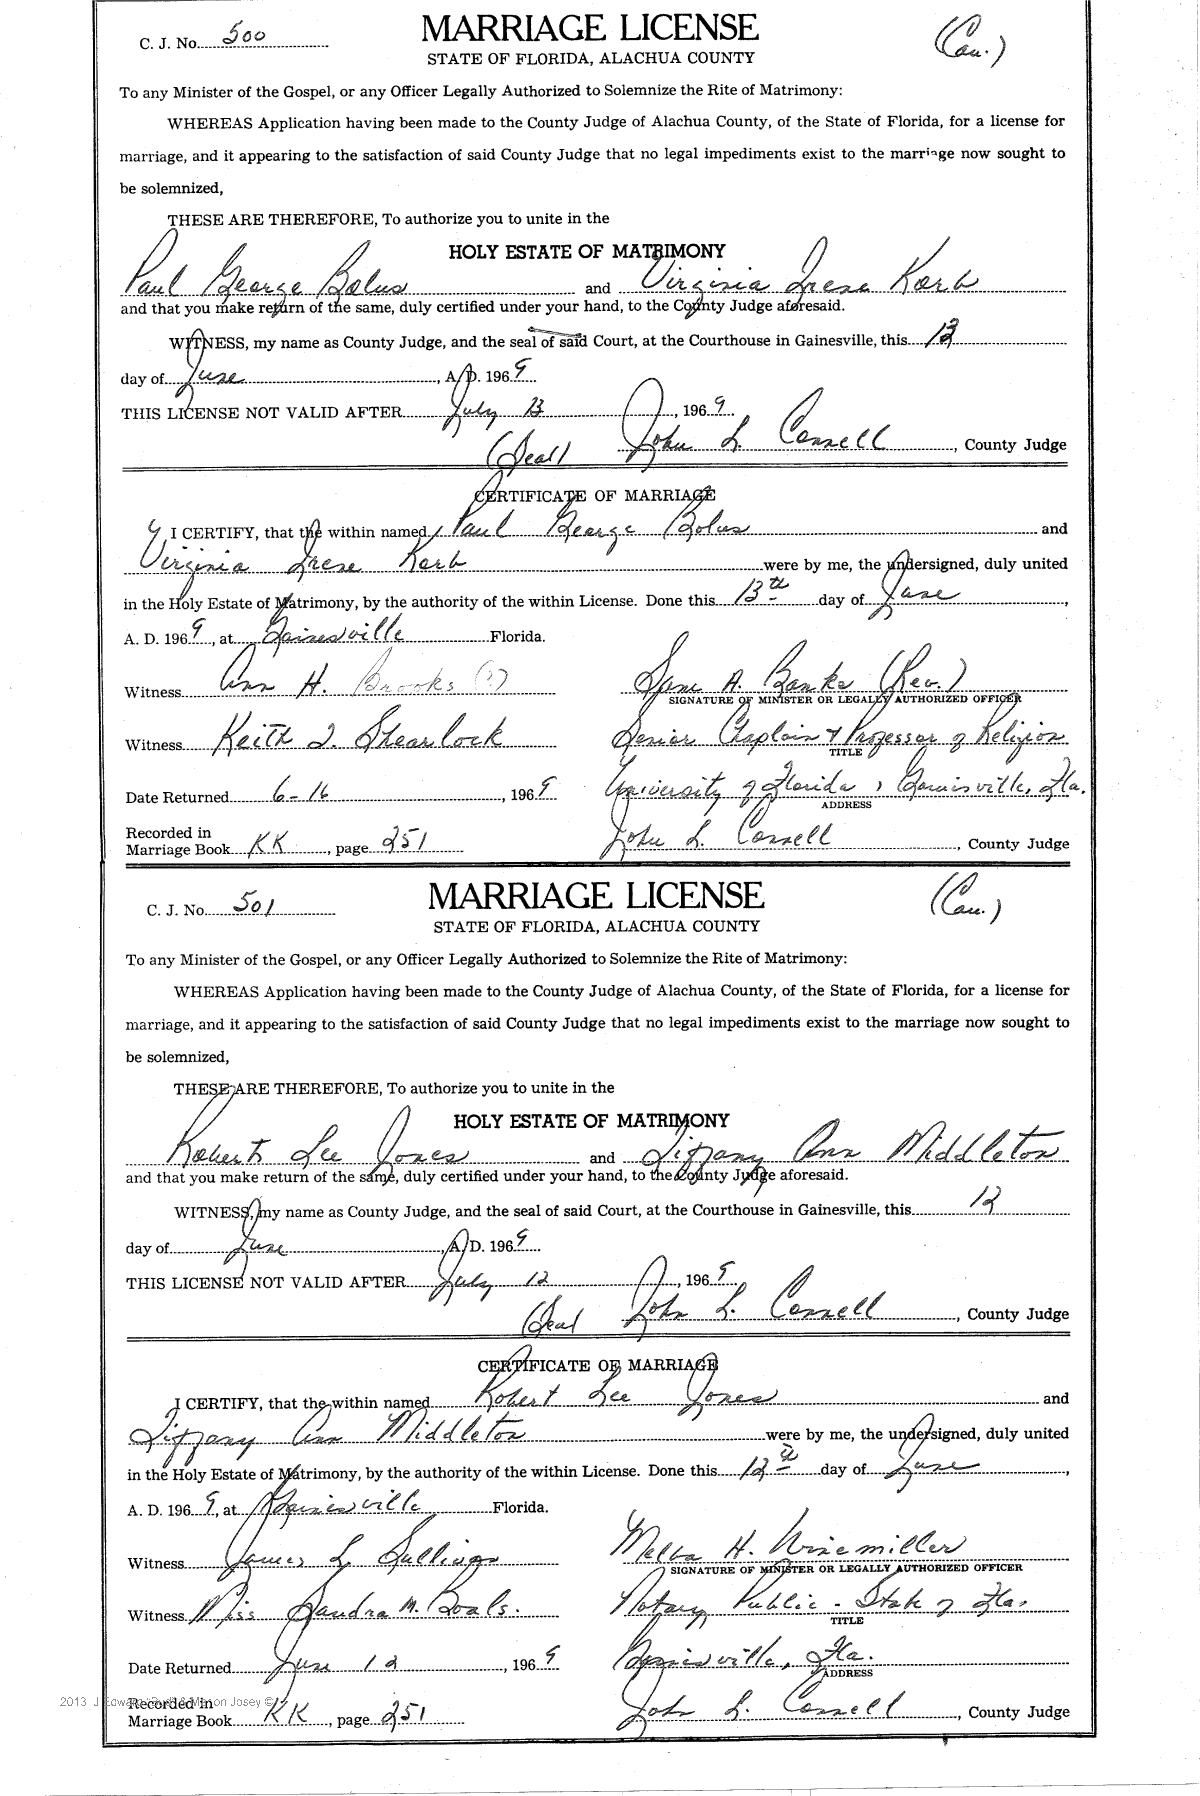 C. J. No. 500
MARRIAGE LICENSE
(Cau.)
STATE OF FLORIDA, ALACHUA COUNTY
To any Minister of the Gospel, or any Officer Legally Authorized to Solemnize the Rite of Matrimony:
WHEREAS Application having been made to the County Judge of Alachua County, of the State of Florida, for a license for
marriage, and it appearing to the satisfaction of said County Judge that no legal impediments exist to the marriage now sought to
be solemnized,
THESE ARE THEREFORE, To authorize you to unite in the
HOLY ESTATE OF MATRIMONY
Paul George Bolus and Virginia Irene Korb
and that you make return of the same, duly certified under your hand, to the County Judge aforesaid.
WITNESS, my name as County Judge, and the seal of said Court, at the Courthouse in Gainesville, this 13
day of June, A. D. 1969
THIS LICENSE NOT VALID AFTER July 13, 1969
(Seal) John L. Connell, County Judge
CERTIFICATE OF MARRIAGE
I CERTIFY, that the within named Paul George Bolus and
Virginia Irene Korb were by me, the undersigned, duly united
in the Holy Estate of Matrimony, by the authority of the within License. Done this 13th day of June,
A. D. 1969, at Gainesville Florida.
Witness Ann H. Brooks (?)
A. Banks (Rev.)
SIGNATURE OF MINISTER OR LEGALLY AUTHORIZED OFFICER
Witness Keith J. Shearlock
Senior Chaplain & Professor of Religion
TITLE
Date Returned 6-16, 1969
University of Florida, Gainesville, Fla.
ADDRESS
Recorded in
Marriage Book KK, page 251
John L. Connell, County Judge
C. J. No. 501
MARRIAGE LICENSE
(Cau.)
STATE OF FLORIDA, ALACHUA COUNTY
To any Minister of the Gospel, or any Officer Legally Authorized to Solemnize the Rite of Matrimony:
WHEREAS Application having been made to the County Judge of Alachua County, of the State of Florida, for a license for
marriage, and it appearing to the satisfaction of said County Judge that no legal impediments exist to the marriage now sought to
be solemnized,
THESE ARE THEREFORE, To authorize you to unite in the
HOLY ESTATE OF MATRIMONY
Robert Lee Jones and Tiffany Ann Middleton
and that you make return of the same, duly certified under your hand, to the County Judge aforesaid.
WITNESS, my name as County Judge, and the seal of said Court, at the Courthouse in Gainesville, this 12
day of June, A. D. 1969
THIS LICENSE NOT VALID AFTER July 12, 1969
(Seal John L. Connell, County Judge
CERTIFICATE OF MARRIAGE
I CERTIFY, that the within named Robert Lee Jones and
Tiffany Ann Middleton were by me, the undersigned, duly united
in the Holy Estate of Matrimony, by the authority of the within License. Done this 12th day of June,
A. D. 1969, at Gainesville Florida.
Witness James L. Sullivan
Melba H. Winemiller
SIGNATURE OF MINISTER OR LEGALLY AUTHORIZED OFFICER
Witness Miss Sandra M. Boals.
Notary Public - State of Fla.
TITLE
Date Returned June 12, 1969
Gainesville, Fla.
ADDRESS
Recorded in
Marriage Book KK, page 251
John L. Connell, County Judge